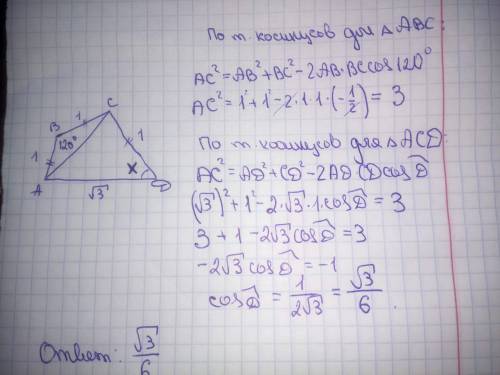 По т. косинусов для △ABC:
AC² = AB² + BC² - 2AB·BC cos120°
AC² = 1² + 1² - 2·1·1·(-1/2) = 3
По т. косинусов для △ACD:
AC² = AD² + CD² - 2AD·CD cos D̂
(√3)² + 1² - 2·√3·1·cos D̂ = 3
3 + 1 - 2√3 cos D̂ = 3
-2√3 cos D̂ = -1
cos D̂ = 1/(2√3) = √3/6.
Ответ: √3/6
C
B
1
120°
1
1
x
A
D
√3